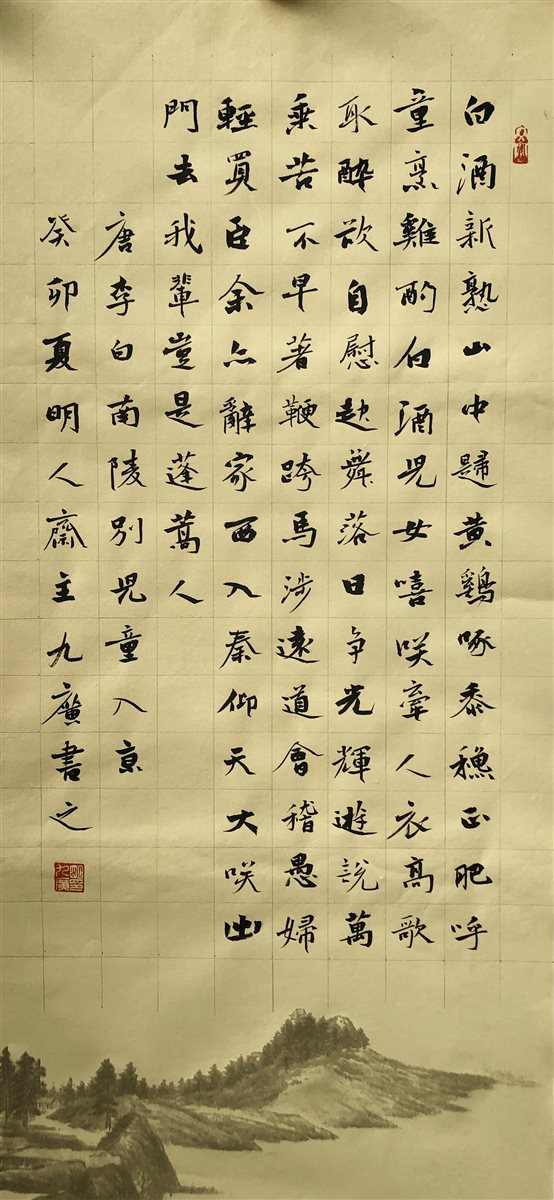 白酒新熟山中歸黃鷄啄黍穐正肥呼
童烹雞酌白酒兒女嘻咲牽人衣高歌
取醉欲自慰起舞落日争光輝遊說萬
乘苦不早著鞭跨馬涉遠道會稽愚婦
輕買臣余亦辭家西入秦仰天大咲出
門去我輩豈是蓬蒿人
唐李白南陵別兒童入京
癸卯夏明人齋主九廉書之